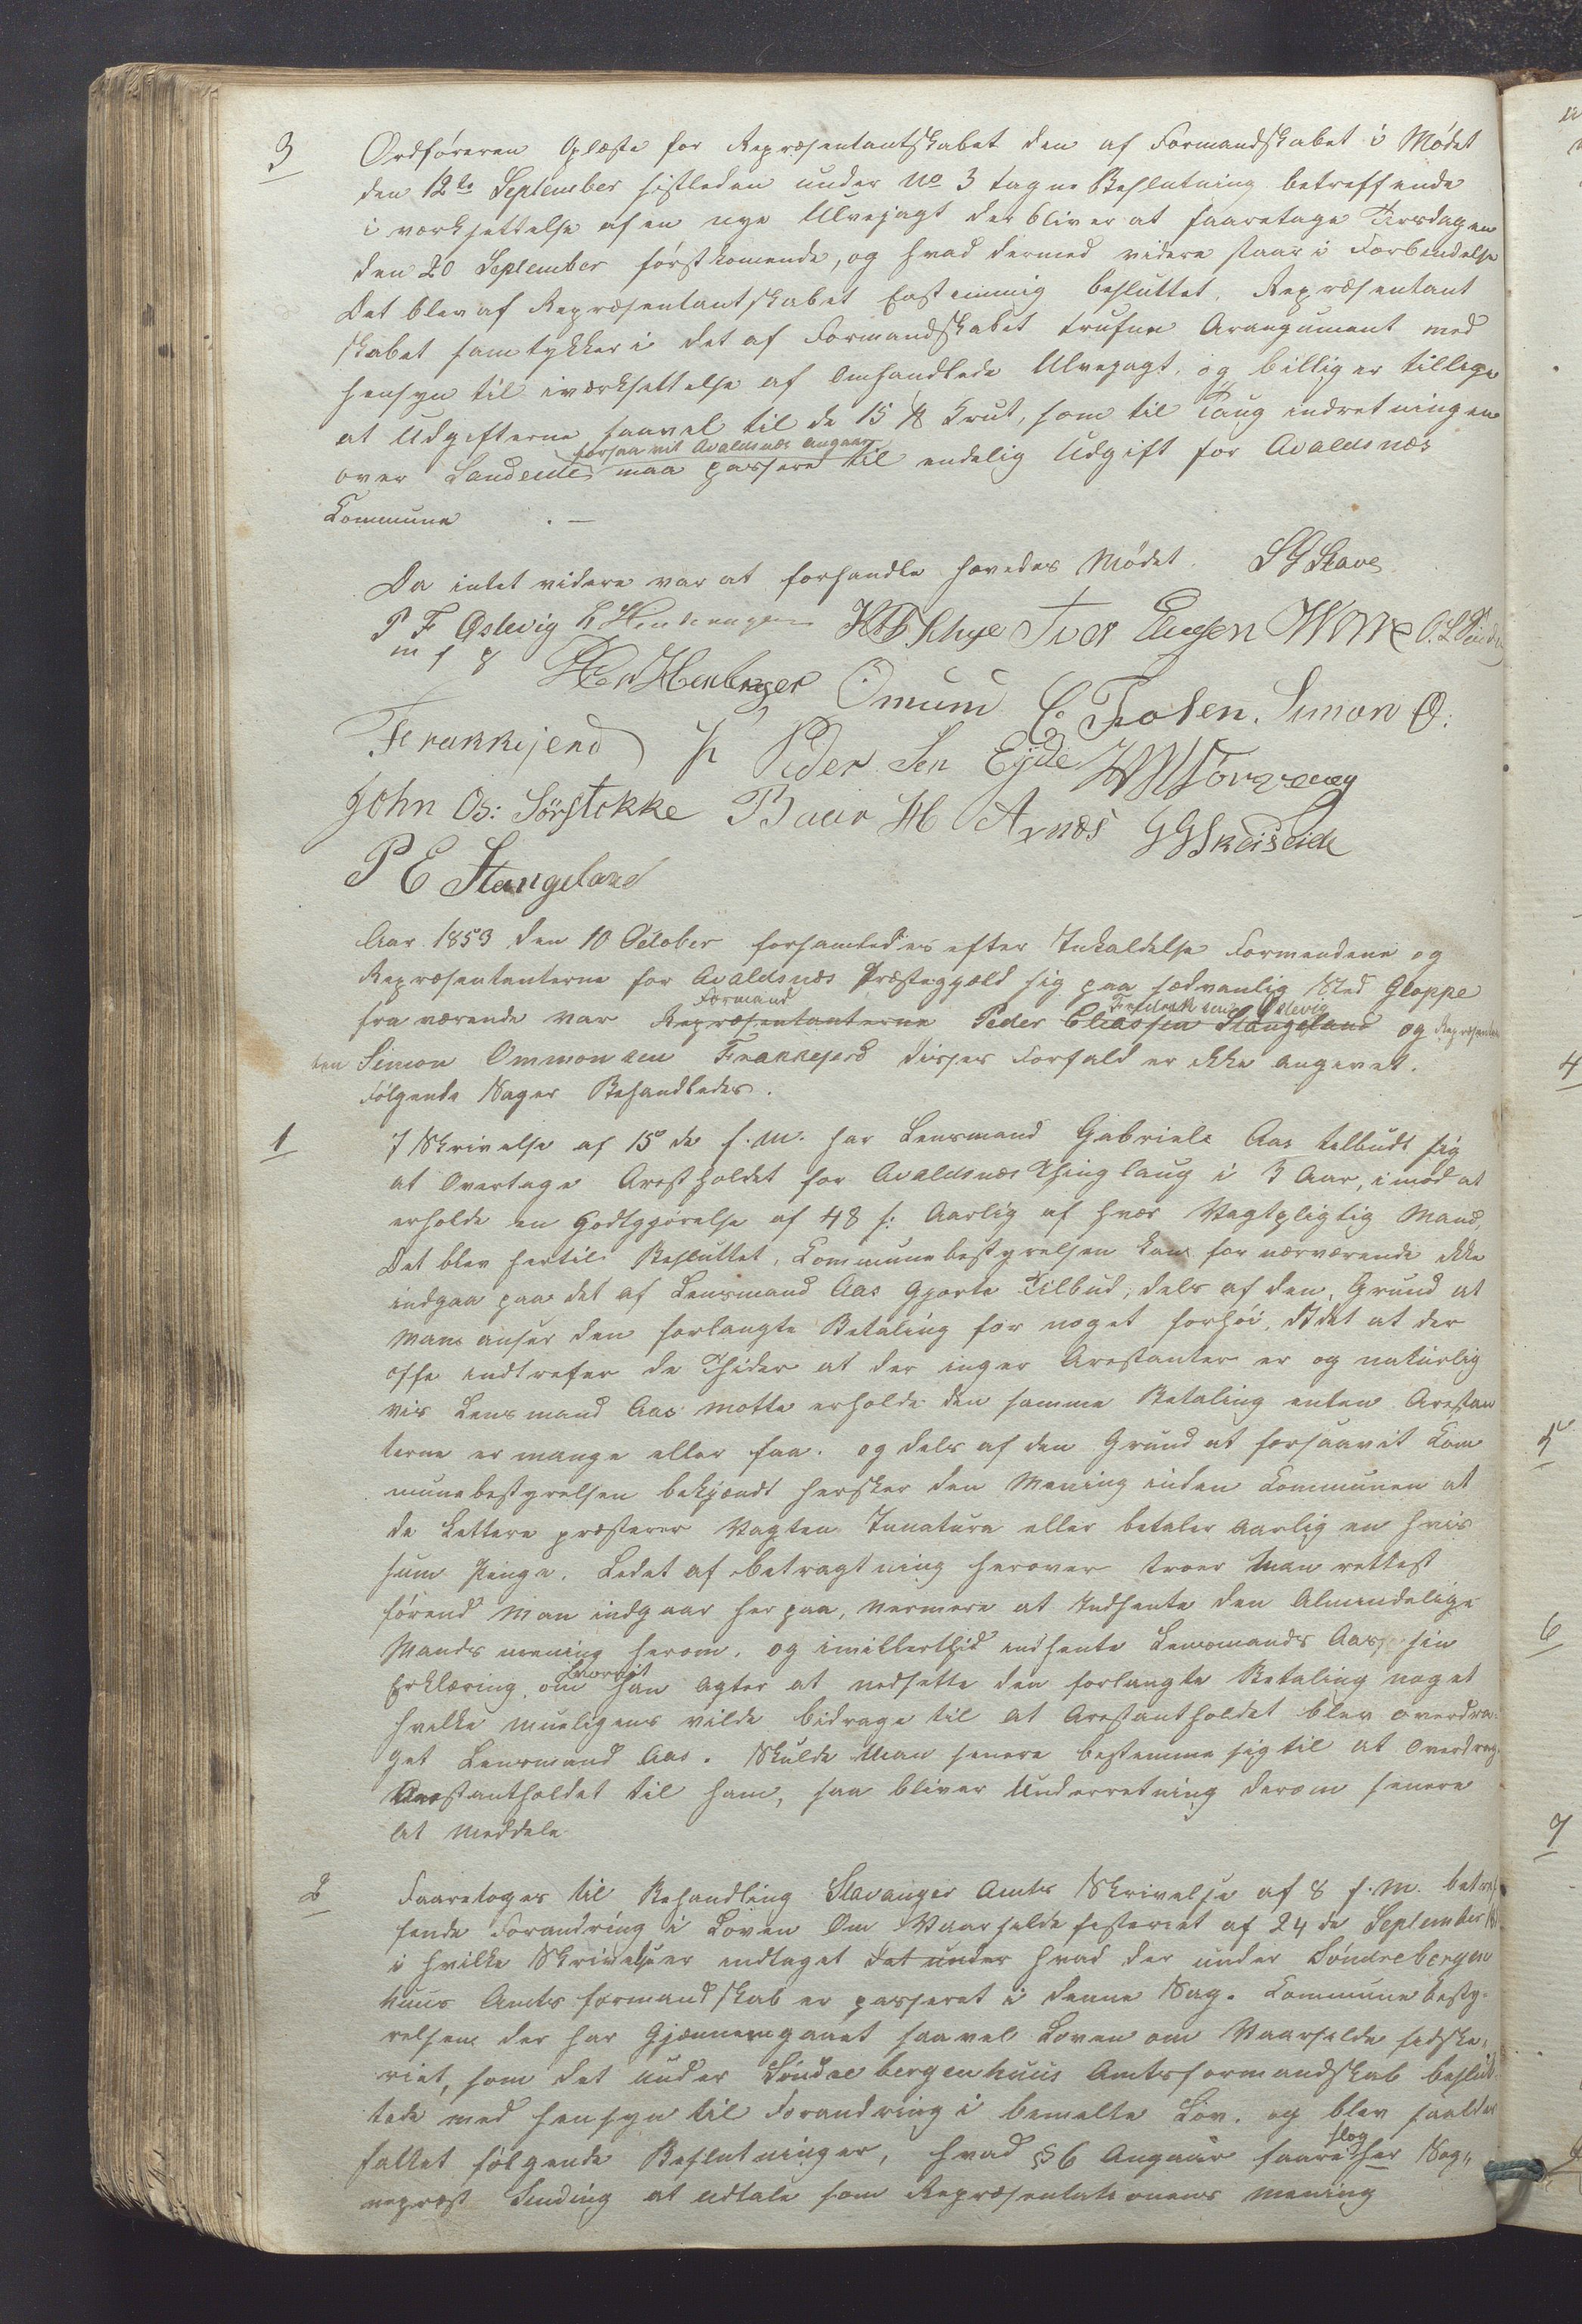 3 Ordføreren Oplæste for Repræsentantskabet den af Formandskabet i Mødet
den 12te September sistleden under No 3 tagne Beslutning betreffende
i værksettelse af en nye Ulvejagt der bliver at faaretage Tirsdagen
den 20 September førstkomende, og hvad dermed videre staar i Forbindelse
Det blev af Repræsentantskabet Enstemmig besluttet. Repræsentant
skabet samtykker i det af Formandskabet trufne Arangument med
hensyn til iværksettelse af Omhandlede Ulvejagt, og billiger tillige
at Udgifterne saavel til de 15 ℔ Krut, som til Taug indretningen
forsaavit Avaldsnæs angaar
over Landeule maa passere til endelig Udgift for Avaldsnæs
Commune . —
Da intet videre var at forhandle hævedes Mødet. S G Stave
P F Østevig L Henderengen Iver Eliesen
m f P Omund C. Simon O.
Frakkejend Peder Sen Eyde
John Os: Sørstokke Baar H Arnæs G G Skeiseide
P E Stangeland
Aar 1853 den 10 October forsamledes efter Inkaldelse Formændene og
Repræsentanterne for Avaldsnæs Præstegjæld sig paa sædvanlig Sted Gloppe
Formand Fredriksen Østevig
fraværende var Repræsentanterne Peder Eliassen Stangeland og Repræsentan
ten Simon Ommonsen Frakkejerd disses Forfald er ikke angivet.
Følgende Sager Behandledes.
1 I Skrivelse af 15de f. M. har Lensmand Gabriele Aas telbudt sig
at Overtage Arestholdet for Avaldsnæs Thinglaug i 3 Aar, imod at
erholde en Godtgjørelse af 48 s: Aarlig af hver Vagtpligtig Mand,
Det blev hertil Besluttet, Communebestyrelsen kan for nærværende ikke
indgaa paa det af Lensmand Aas gjorte Tilbud, dels af den Grund at
Man anser den forlangte Betaling for noget forhøi, Idet at der
offte indtrefer de Thider at der inger Arestanter er og naturlig
vis Lensmand Aas motte erholde den samme Betaling enten Arestan
terne er mange eller faa. og dels af den Grund at forsaavit Com
munebestyrelsen bekjendt hersker den Mening inden Communen at
de Lettere præsterer Vagten Innatura eller betaler Aarlig en hvis
sum Penge. Ledet af betragtning herover troer Man rettest
førend Man indgaar her paa, nermere at Indhente den Almindelige
Mands mening herom, og imillerthid indhente Lensmands Aas sin
hvorvit
Erklæring, om han Agter at nedsette den forlangte Betaling noget
hvilke mueligens vilde bidrage til at Arestantholdet blev overdra-
get Lensmand Aas. Skulde Man senere bestemme sig til at Overdrag
Arestantholdet til ham, saa bliver Underretning derom senere
at Meddele
2 Faaretoges til Behandling Stavanger Amts Skrivelse af 8 f. M. betref
fende Forandring i Loven Om Vaarsildefiskeriet af 24de September
i hvilke Skrivelse er indtaget det under hvad der under Søndrebergen
huus Amts formandskab er passeret i denne Sag. Communebesty-
relsen der har Gjennemgaaet saavel Loven om Vaarsildefiske-
riet, som det under Søndre bergenhuus Amtsformandskab beslut-
tede med hensyn til Forandring i bemelte Lov. og blev saaledes
fattet følgende Beslutninger, hvad § 6 Angaar faareslog her Sog„
nepræst Sinding at udtale som Repræsentationens mening